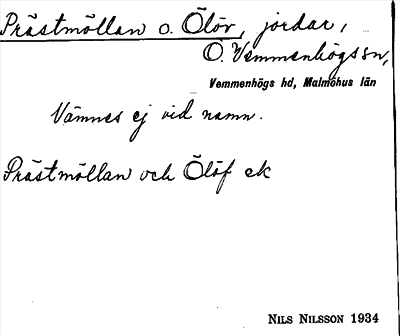 Prästmöllan o. Ölöv, jordar,
Ö. Vemmenhögs sn,
Vemmenhögs hd, Malmöhus län
Vämnes ej vid namn.
Prästmöllan och Ölöf ek
NILS NILSSON 1934